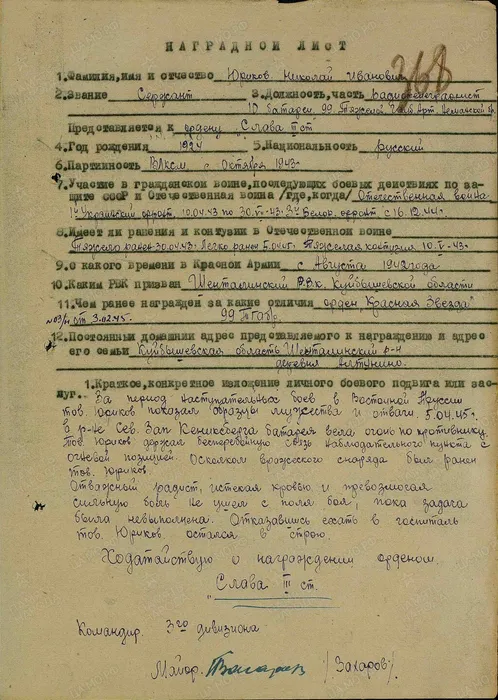 НАГРАДНОЙ ЛИСТ
368
1.Фамилия,имя и отчество Юриков Николай Иванович
2.Звание Сержант 3.Должность,часть Радиотелеграфист
10 батареи 99 Тяжелой Гауб Арт.
Представляется к ордену „Слава III ст"
4.Год рождения 1924 5.Национальность русский
6.Партийность ВЛКСМ с Октября 1943г
7.Участие в гражданской войне,последующих боевых действиях по за-
щите СССР и Отечественная война/где,когда/ Отечественная война
1й Украинский фронт. 10.04.43 по 30.VI-43. 3й Белор. фронт с 16.12.44г.
8.Имеет ли ранения и контузии в Отечественной войне
Тяжело ранен 30.04.43. Легко ранен 5.04.45г. Тяжелая контузия 10.V-43.
9.С какого времени в Красной Армии с Августа 1942года
10.Каким РВК призван Шенталинский РВК. Куйбышевской области
11.Чем ранее награжден за какие отличия орден „Красная Звезда"
№03/н от 3.02.45г. 99 ТГабр.
12.Постоянный домашний адрес представляемого к награждению и адрес
его семьи Куйбышевская область Шенталинский р-н
деревня Алтунино.
1.Краткое,конкретное изложение личного боевого подвига или зас-
луг. За период наступательных боев в Восточной Пруссии
тов. Юриков показал образцы мужества и отваги. 5.04.45г.
в р-не Сев. Зап Кенигсберга батарея вела огонь по противнику.
Тов. Юриков держал бесперебойную связь наблюдательного пункта с
огневой позицией. Осколком вражеского снаряда был ранен
тов. Юриков.
Отважный радист, истекая кровью и превозмогая
сильную боль не ушел с поля боя, пока задача
была невыполнена. Отказавшись ехать в госпиталь
тов. Юриков остался в строю.
Ходатайствую о награждении орденом
„Слава III ст.
Командир 3го дивизиона
Майор /Захаров/